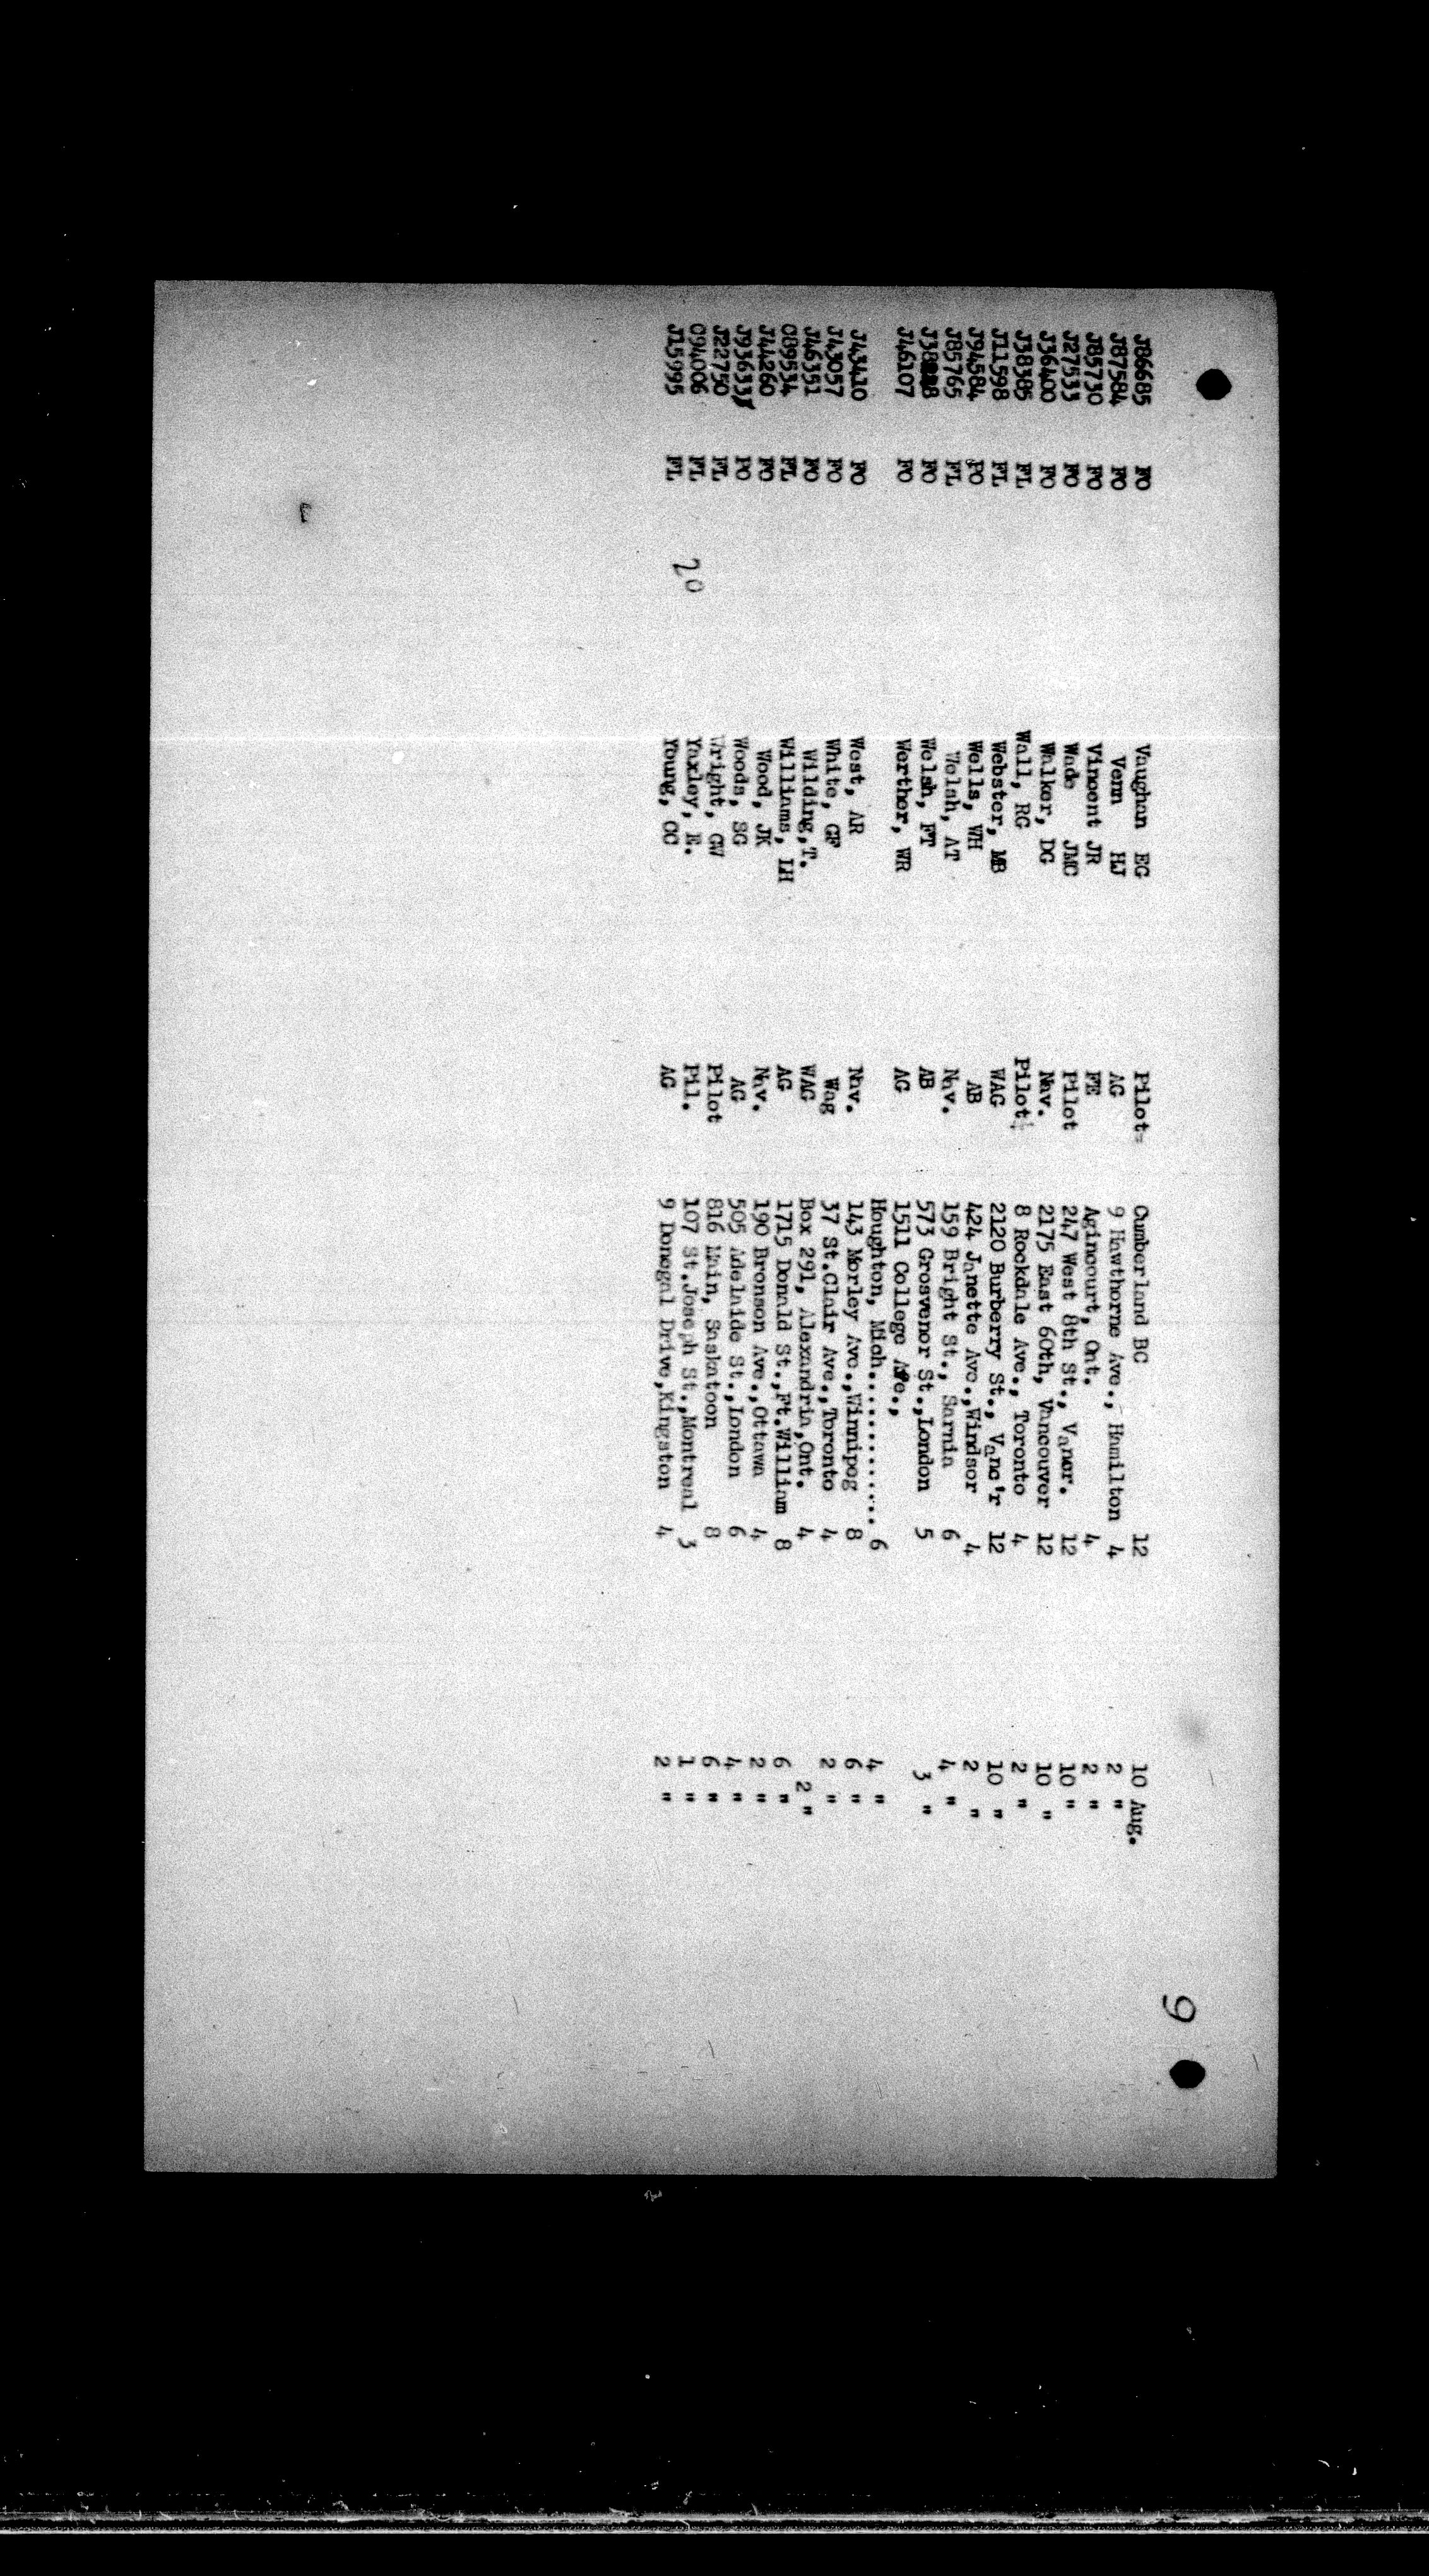 9
J86685 FO Vaughan EG Pilot Cumberland BC 12 10 Aug.
J87584 FO Venn HJ AG 9 Hawthorne Ave., Hamilton 4 2 "
J85730 FO Vincent JR FE Agincourt, Ont. 4 2 "
J27533 FO Wade JMC Pilot 247 West 8th St., Vancr. 12 10 "
J36400 FO Walker, DG Nav. 2175 East 60th, Vancouver 12 10 "
J38385 FL Wall, RG Pilot 8 Rockdale Ave., Toronto 4 2 "
J11598 FL Webster, MB WAG 2120 Burberry St., Vanc'r 12 10 "
J94584 PO Wells, WH AB 424 Janette Ave., Windsor 4 2 "
J85765 FL Welsh, AT Nav. 159 Bright St., Sarnia 6 4 "
FO Welsh, FT AB 573 Grosvenor St., London 5 3 "
J46107 FO Werther, WR AG 1511 College Ave.,
Houghton, Mich............. 6 4 "
J43410 FO West, AR Nav. 143 Morley Ave., Winnipeg 8 6 "
J43057 FO White, GF Wag 37 St.Clair Ave., Toronto 4 2 "
J46351 FO Wilding, T. WAG Box 291, Alexandria, Ont. 4 2 "
C89534 FL Williams, LH AG 1715 Donald St., Ft.William 8 6 "
J44260 FO Wood, JK Nav. 190 Bronson Ave., Ottawa 4 2 "
J93633 PO Woods, SG AG 505 Adelaide St., London 6 4 "
J22750 FL Wright, GW Pilot 816 Main, Saskatoon 8 6 "
C94006 FL Yaxley, E. Pil. 107 St.Joseph St., Montreal 3 1 "
J15995 FL Young, CC AG 9 Donegal Drive, Kingston 4 2 "
20